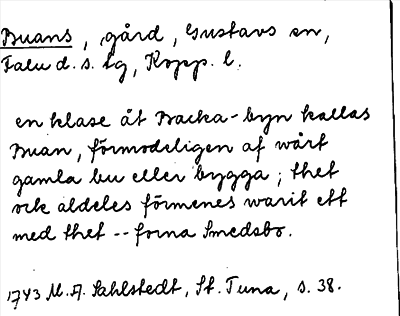 Buans, gård, Gustavs sn,
Falu d. s. lg, Kopp. l.
en klase åt Backa-byn kallas
Buan, förmodeligen af wårt
gamla bu eller bygga; thet
ock aldeles förmenes warit ett
med thet -- forna Smedsbo.
1743 M. A. Sahlstedt, St. Tuna, s. 38.